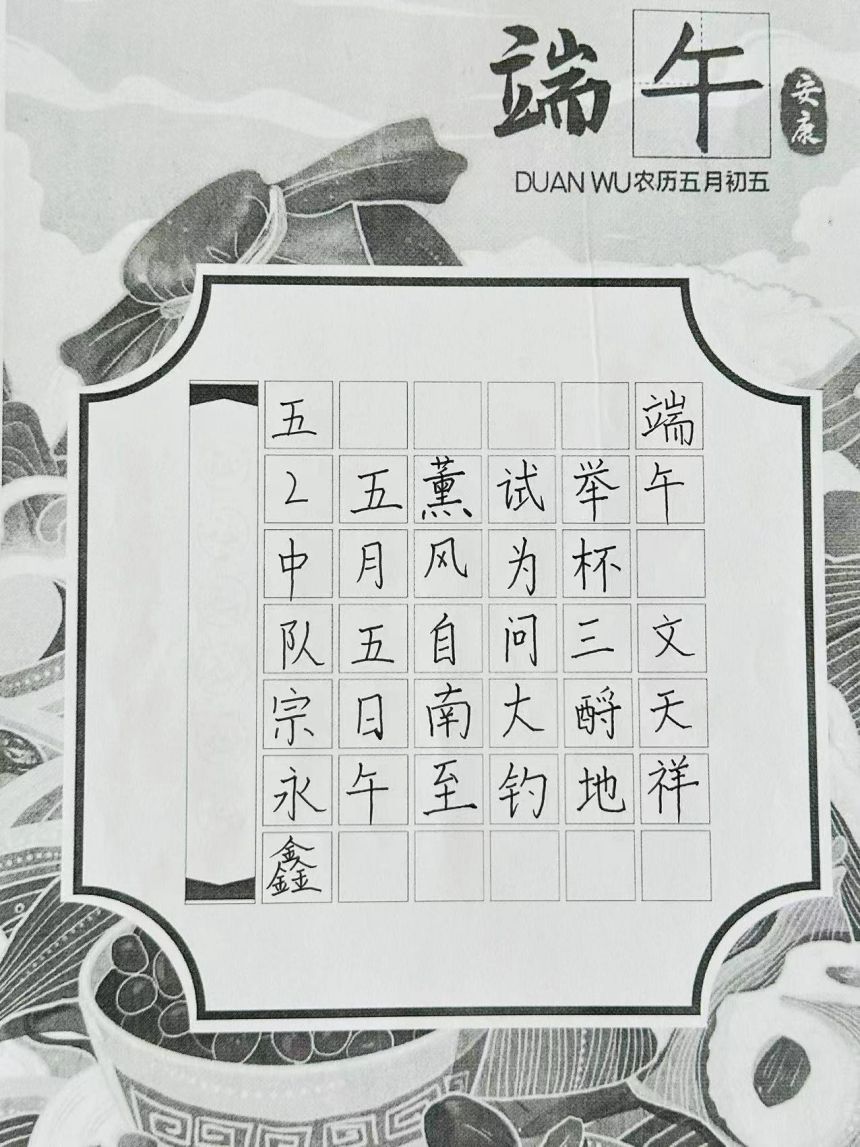 端午
安康
DUAN WU农历五月初五
端午 文天祥
举杯三酹地
试为问大钓
薰风自南至
五月五日午
五2中队宗永鑫